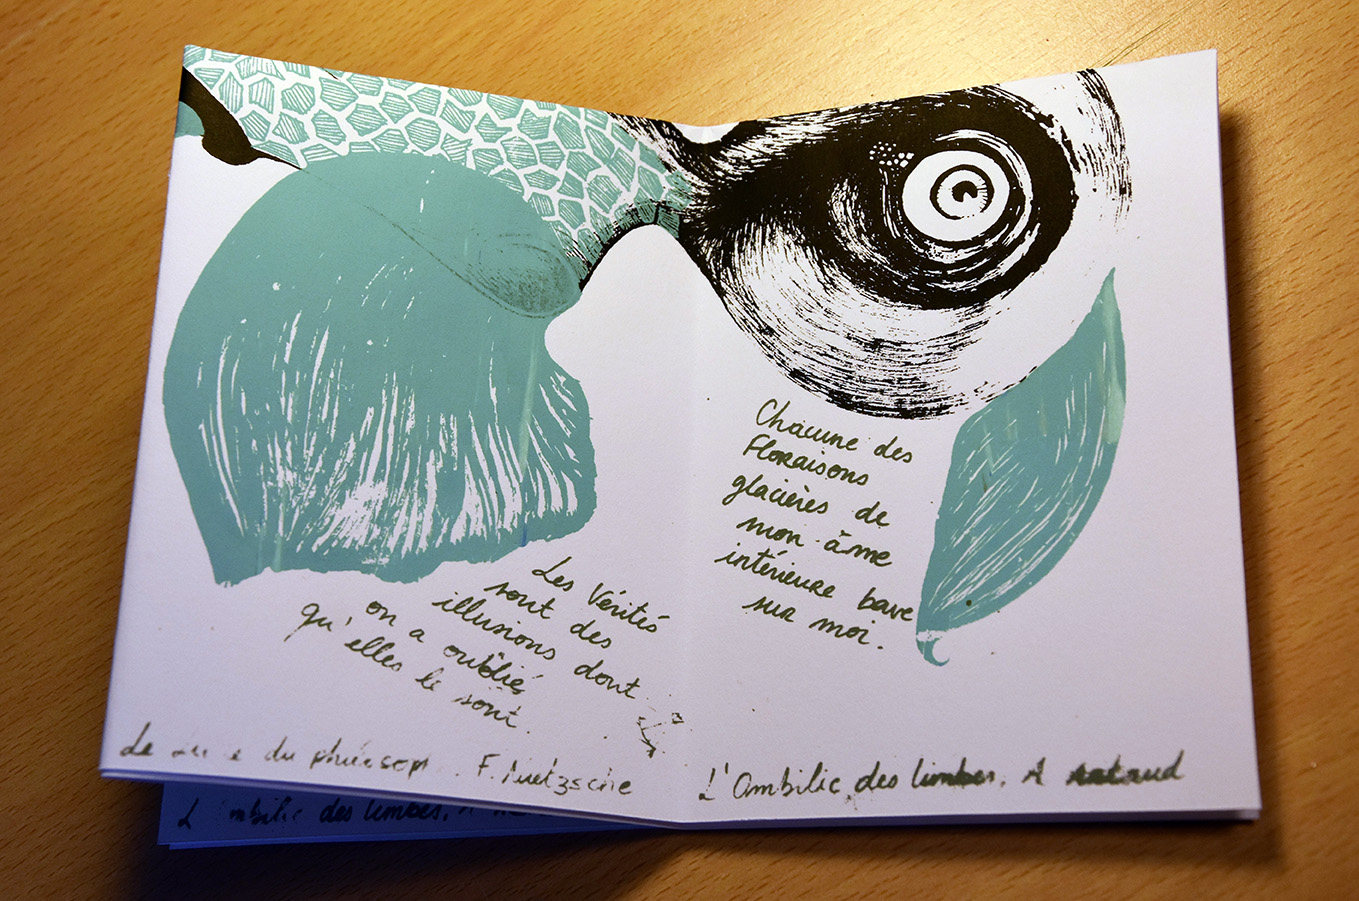 Les Vérités
sont des
illusions dont
on a oublié
qu'elles le sont.
Le du F. Nietzsche
Chacune des
Floraisons
glacières de
mon âme
intérieure bave
sur moi.
L'Ombilic des limbes. A
L' des limbes.